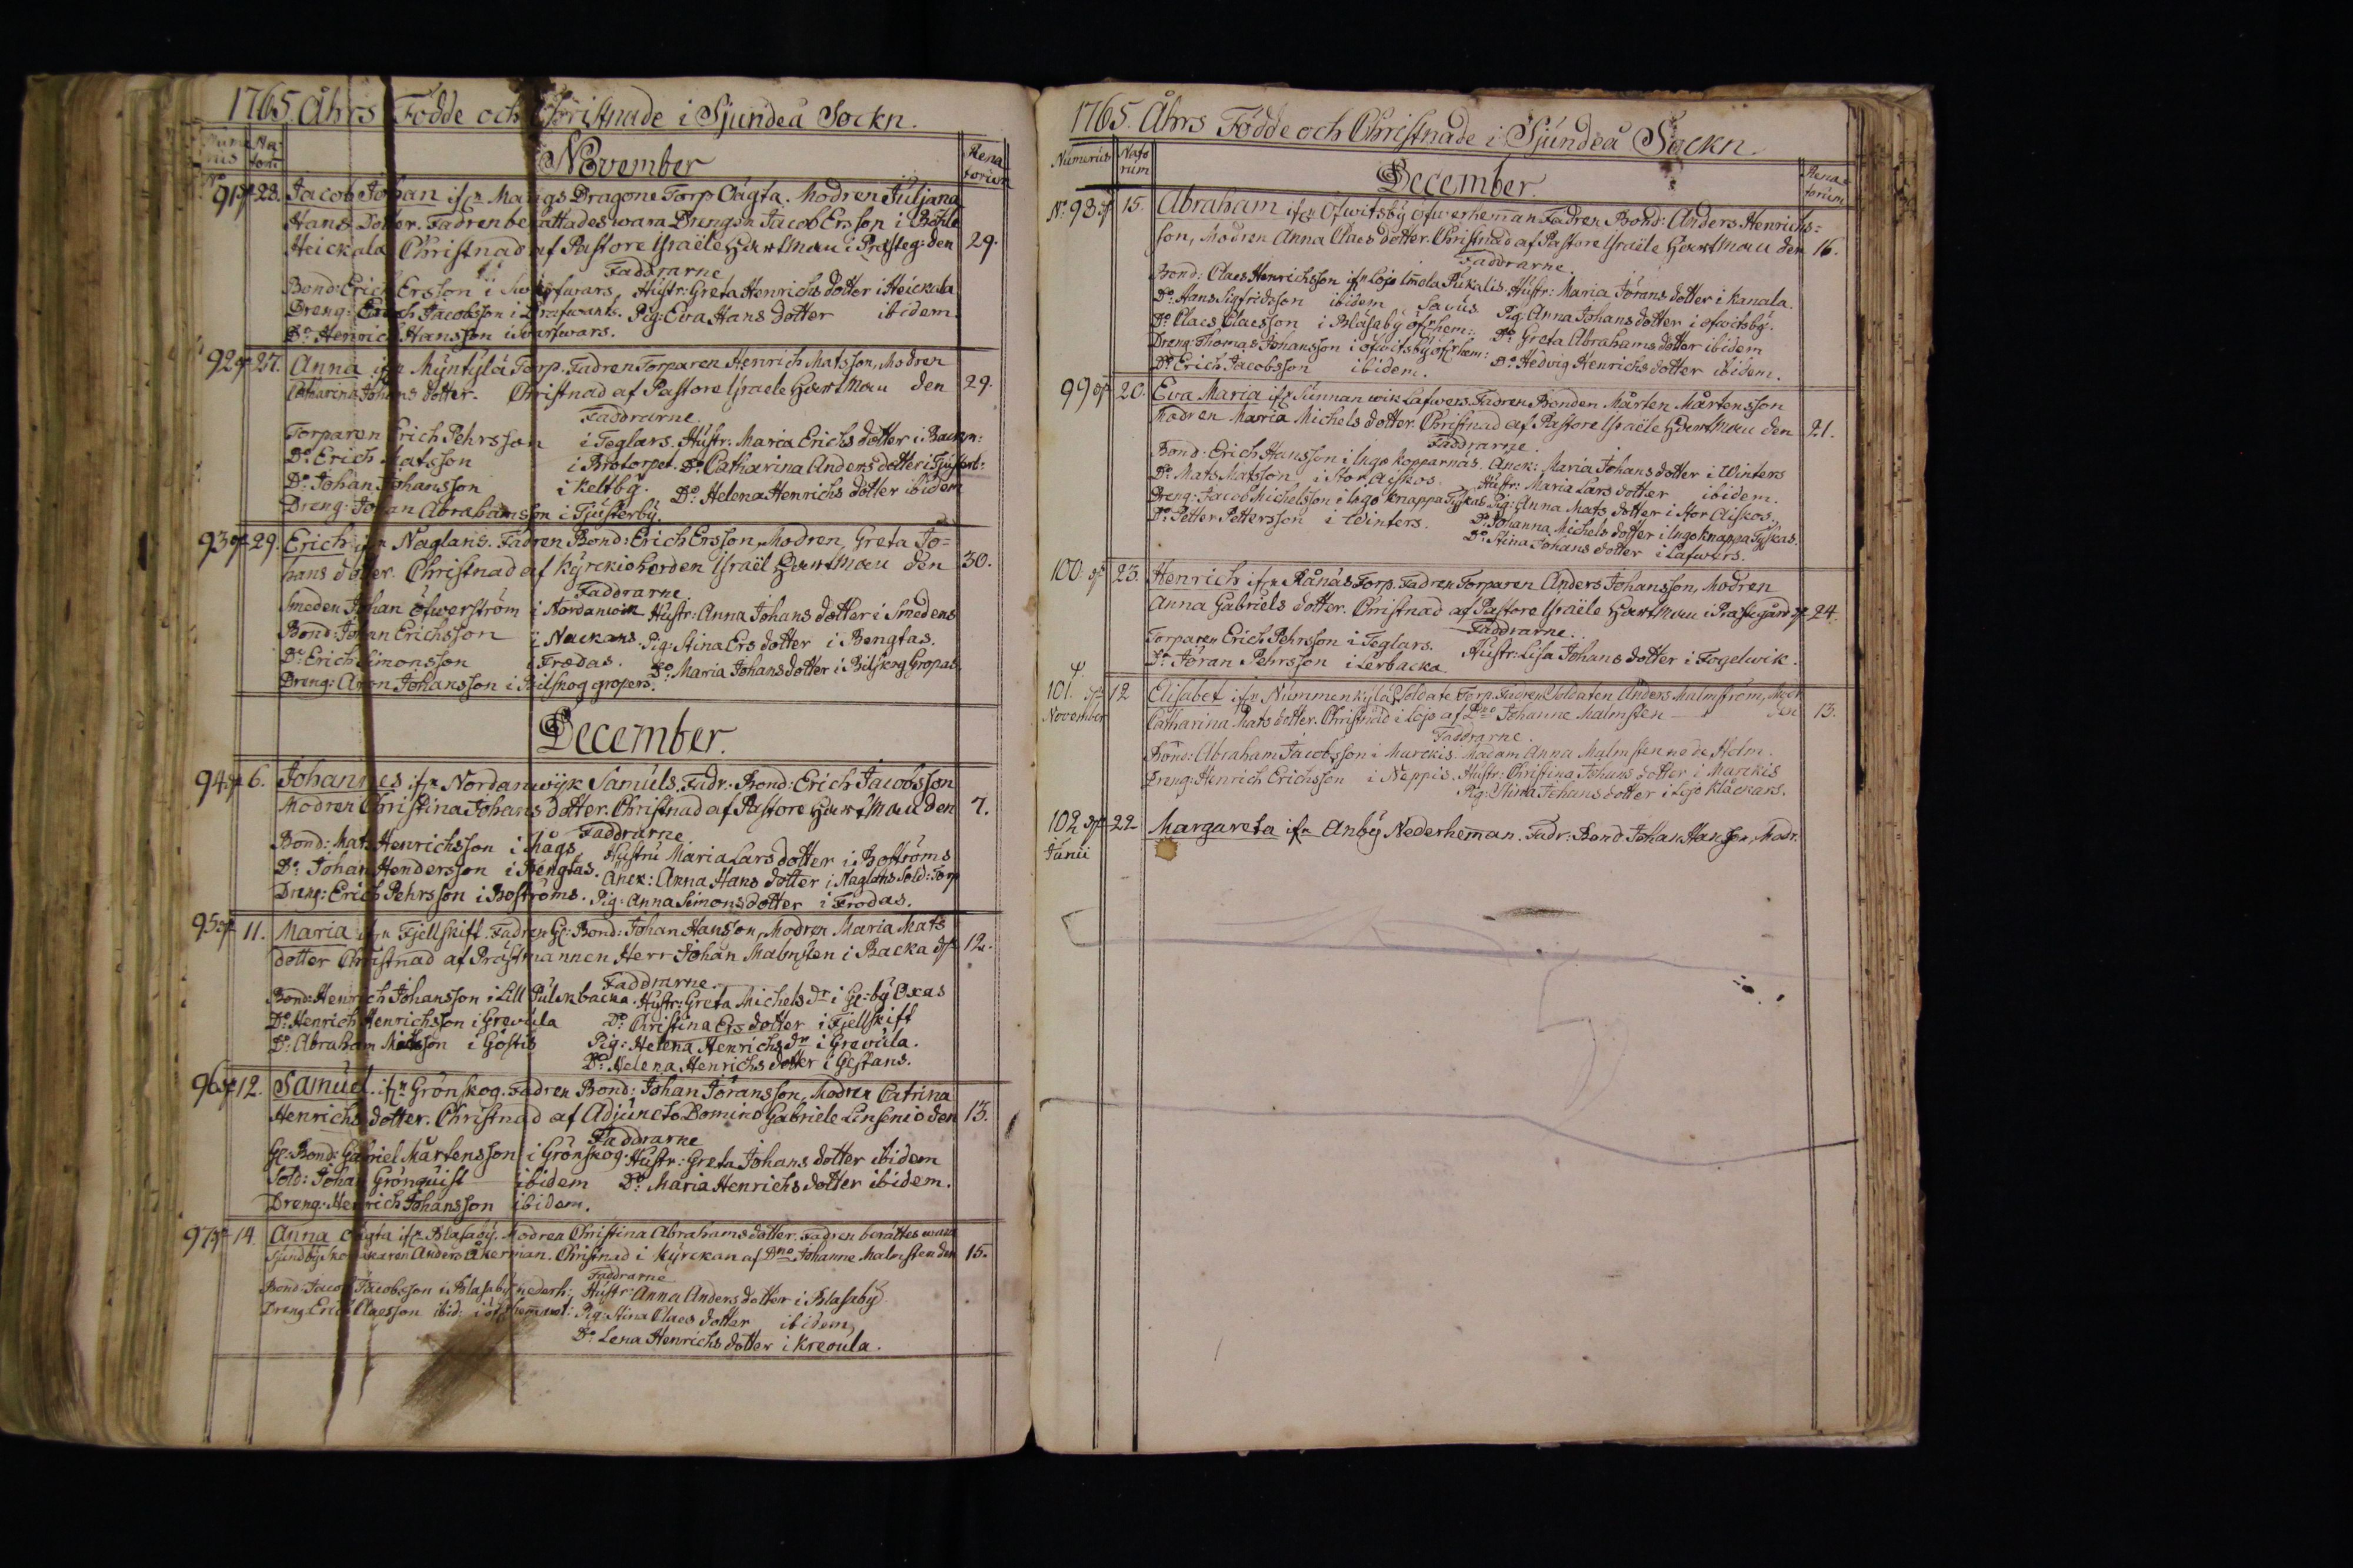 1765. Åhrs Födde och Christnade i Sjundeå Sockn.
Na-
torũ
November
Rena
torum
No 91 28. Jacob Johan ifrn Mangs Dragone Torp Oägta. Modren Juljana
Hans Dotter. Fadren berättades wara Drengen Jacob Ersson i Böhle
Heickala Christnad af Pastore Israële Hartman i Prästeg: den 29.
Faddrarne
Bond: Erich Ersson i Hustr: Greta Henrichs dotter i Heickala
Dreng: Erich Jacobsson i Pig: Eva Hans dotter ibidem.
Do Henrich Hansson i
92 27. Anna ifrn Mÿntÿlä Torp. Fadren Torparen Henrich Matsson, Modren
Catharina Johans dotter. Christnad af Pastore Israele Hartman den 29.
Faddrarne.
Torparen Erich Pehrsson i Teglars. Hustr: Maria Erichs dotter i Backn:
Do Erich Matsson i Brotorpet. Do Catharina Anders dotter i Tjusterb:
Do Johan Johansson i Keltbÿ. Do Helena Henrichs dotter ibidem
Dreng: Johan Abrahamsson i Tjusterbÿ.
93 29. Erich ifrn Naglars. Fadren Bond: Erich Ersson, Modren, Greta Jo-
hans dotter. Christnad af Kÿrckioherden Israël Hartman den 30.
Faddrarne.
Smeden Johan Öfwerström i Nordanwik Hustr: Anna Johans dotter i Smedens
Bond: Johan Erichsson i Nackans. Pig: Stina Ers dotter i Bengtas.
Do Erich Simonsson i Frodas. Do Maria Johans dotter i Bilskog Gropas.
Dreng: Aron Johansson i Bilskog gropers.
December.
94 6. Johannes ifrn Nordanwÿk Samuels. Fadr: Bond: Erich Jacobsson
Modren Christina Johans dotter. Christnad af Pastore Hartman den 7.
Faddrarne
Bond: Mats Henrichsson i Mågs Hustru Maria Lars dotter i Boströms
Do Johan Hendersson i Bengtas. Anck: Anna Hans dotter i Naglars Sold: Torp
Dreng: Erich Pehrsson i Boströms. Pig: Anna Simons dotter i Frodas.
95 11. Maria ifrn Fjellskift. Fadren Gl: Bond: Johan Hansson, Modren Maria Mats
dotter Christnad af Prästmannen Herr Johan Malmsten i Backa 12.
Faddrarne.
Bond: Henrich Johansson i Lill Pulckbacka. Hustr: Greta Michels dr i Gl: bÿ Oxas
Do Henrich Henrichsson i Grevula Do Christina Ers dotter i Fjellskift
Do Abraham Matsson i Göstis Pig: Helena Henrichs dr i Grevula.
Do Helena Henrichs dotter i Gestans.
96 12. Samuel. ifrn Grönskog. Fadren Bond: Johan Jöransson, Modren Catrina
Henrichs dotter. Christnad af Adjuncto Domino Gabriele Linsenio den 13.
Faddrarne
Gl: Bond: Gabriel Mårtensson i Grönskog. Hustr: Greta Johans dotter ibidem
Sold: Johan Grönquist ibidem Do Maria Henrichs dotter ibidem.
Dreng: Henrich Johansson ibidem.
97 14. Anna oägta ifrn Blasabÿ. Modren Christina Abrahams dotter. Fadren berättes wara
Sjundbÿ Skomakaren Anders Åkerman. Christnad i Kÿrckan af Dno Johanne Malmsten den 15.
Faddrarne
Bond: Jacob Jacobsson i Blasabÿ nederh: Hustr: Anna Anders dotter i Blasabÿ
Dreng: Erich Claesson ibid: Pig: Stina Claes dotter ibidem
Do Lena Henrichs dotter i Kreoula.
1765. Åhrs Födde och Christnade i Sjundeå Sockn.
Numerus
Nato
rum
December.
Rena-
torum
No 98 15. Abraham ifrn Ofwitsbÿ öfwerheman Fadren Bond: Anders Henrichs-
son, Modren Anna Claes dotter. Christnad af Pastore Israële Hartman den 16.
Faddrarne.
Bond: Claes Henrichsson ifrn Lojo Imola Pukalis Hustr: Maria Jörans dotter i Kanala.
Do Hans Sigfridsson ibidem Savus Pig: Anna Johans dotter i ofwitsbÿ.
Do Claes Claesson i Blasabÿ öfrhem: Do Greta Abrahams dotter ibidem
Dreng: Thomas Johansson i ofwitsbÿ öfrhem: Do Hedvig Henrichs dotter ibidem.
Do Erich Jacobsson ibidem.
99 20. Eva Maria ifrn Sunnanwik Lafwers. Fadren Bonden Mårten Mårtensson
Modren Maria Michels dotter. Christnad af Pastore Israële Hartman den 21.
Faddrarne.
Bond: Erich Hansson i Ingo Kopparnäs. Anck: Maria Johans dotter i Winters
Do Mats Matsson i Stor Aiskos. Hustr: Maria Lars dotter ibidem.
Dreng: Jacob Michelsson i Ingo Knappa Tÿskas Pig: Anna Mats dotter i Stor Aiskos.
Do Petter Pettersson i Winters. Do Johanna Michels dotter i Ingo Knappa Tÿskas.
Do Stina Johans dotter i Lafwers.
100. 23. Henrich ifrn Rånäs Torp. Fadren Torparen Anders Johansson, Modren
Anna Gabriels dotter. Christnad af Pastore Israële Hartman i Prästegård 24.
Faddrarne.
Torparen Erich Pehrsson i Teglars. Hustr: Lisa Johans dotter i Fogelwik.
Do Jöran Pehrsson i Lerbacka
101. 12 Elisabet ifrn Nummenkÿlä Soldate Torp. Fadren Soldaten Anders Malmström, Modr
November Catharina Mats dotter. Christnad i Lojo af Dno Johanne Malmsten den 13.
Faddrarne.
Bond: Abraham Jacobsson i Marckis Madam Anna Malmsten nede Holm.
Dreng: Henrich Erichsson i Neppis. Hustr: Christina Johans dotter i Marckis
Pig: Stina Johans dotter i Lojo Klåckars.
102 22 Margareta ifrn Anbÿ Nederheman. Fadr: Bond Johan Hansson, Modr.
Junii